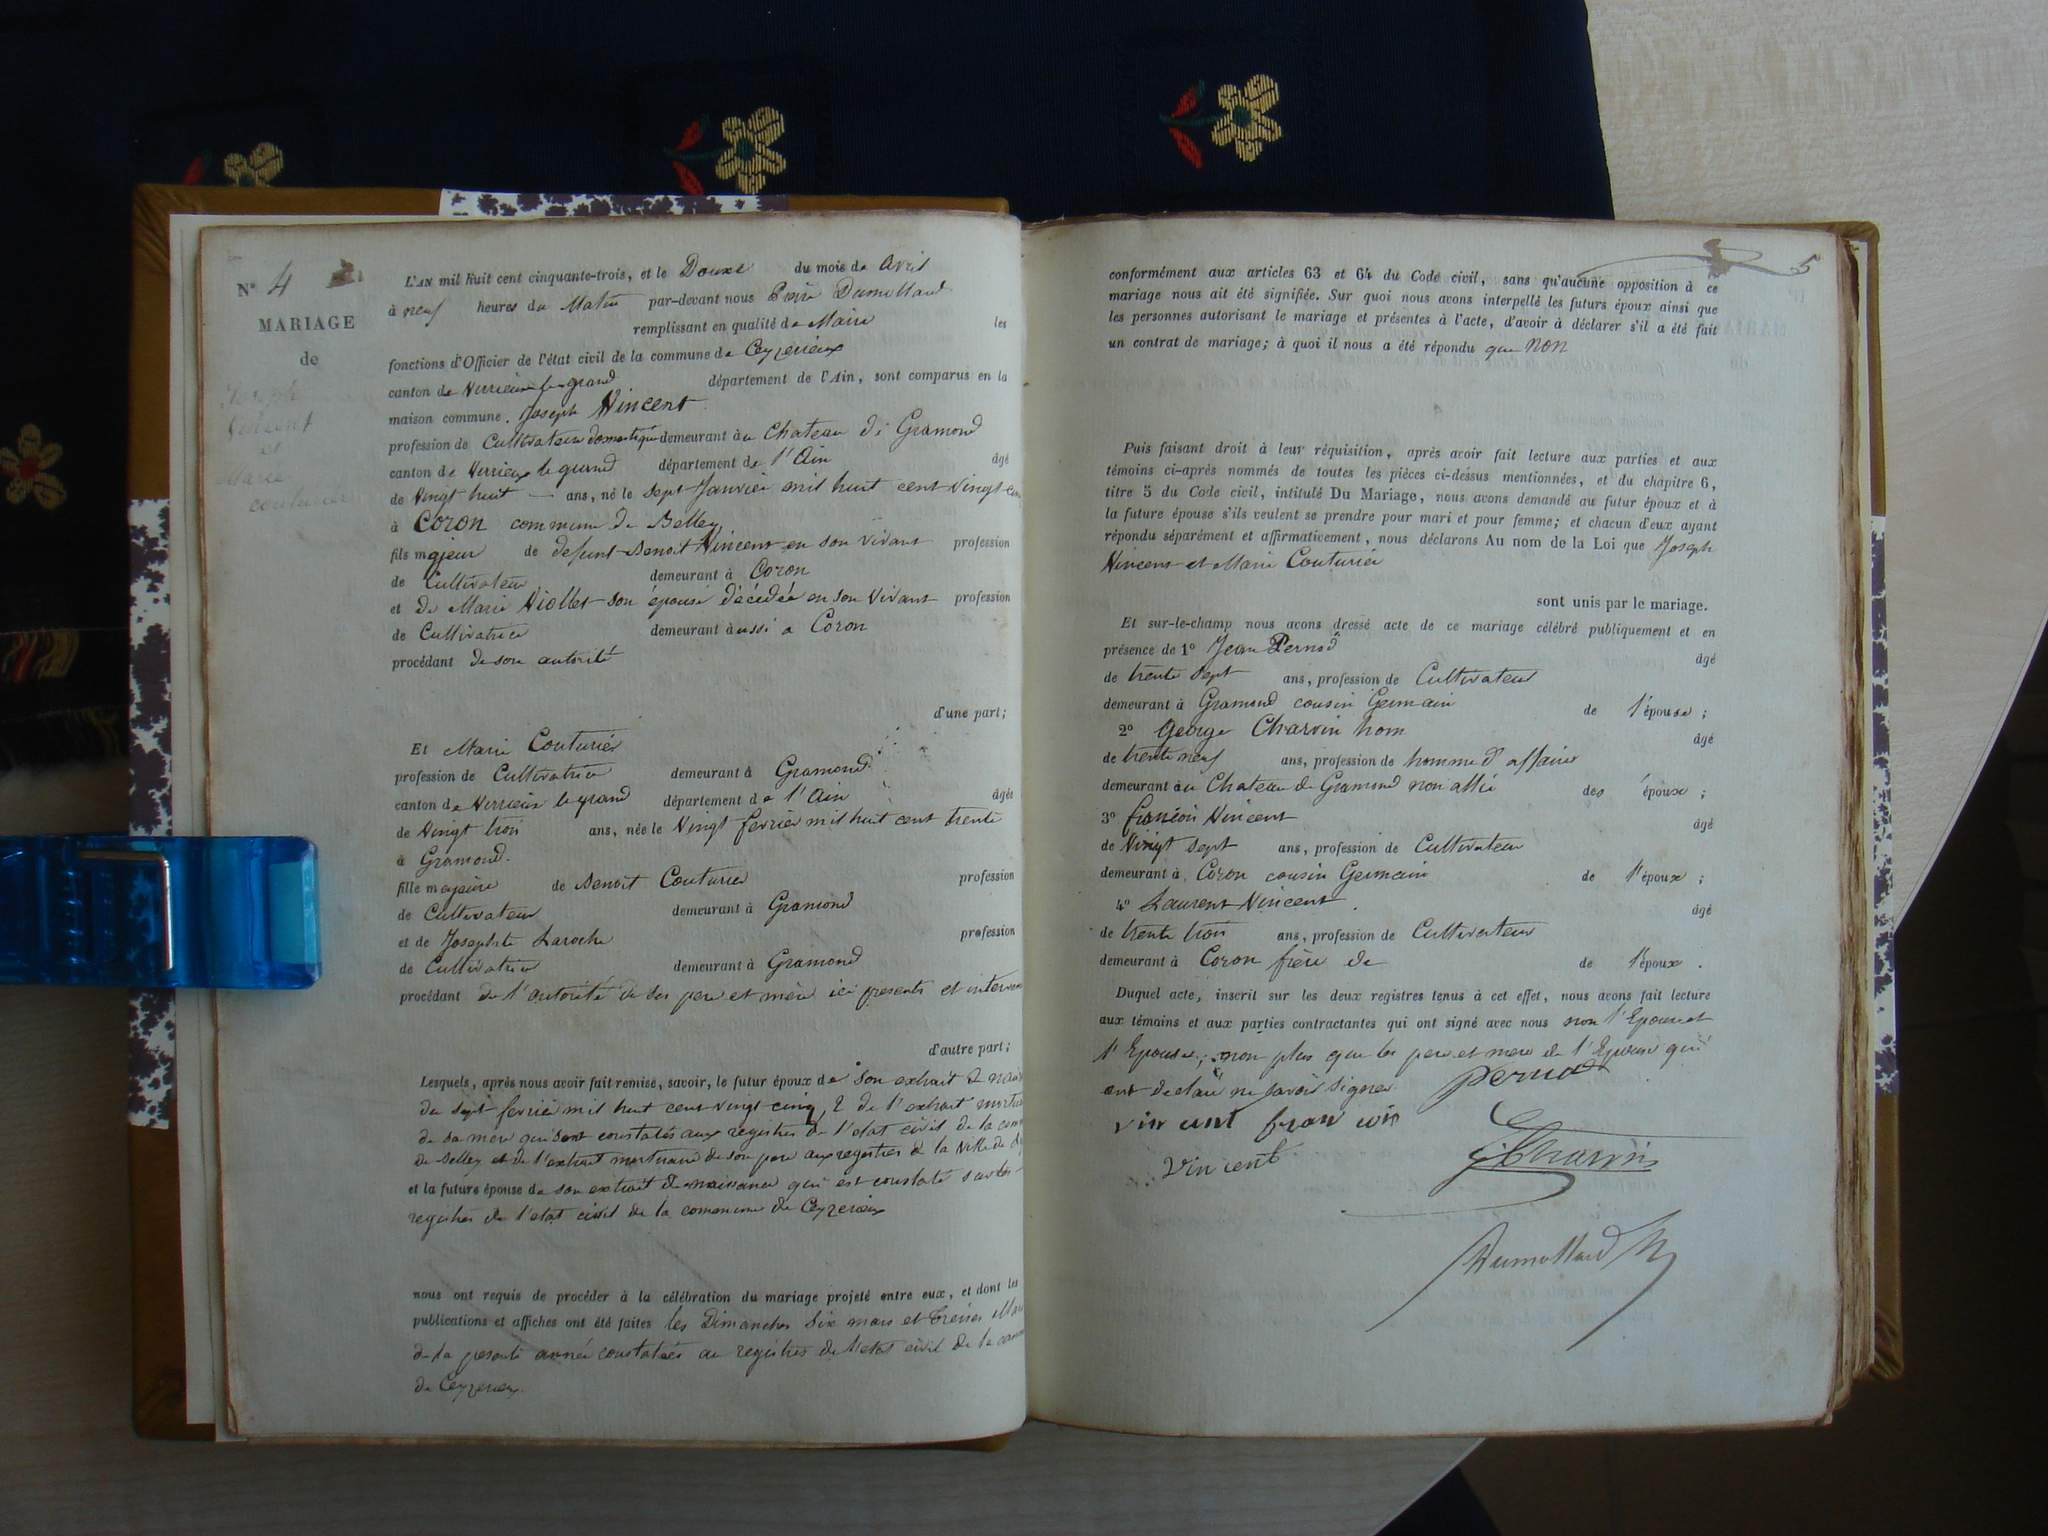 N° 4
MARIAGE
de
Joseph
Vincent
et
Marie
couturier
L'AN mil huit cent cinquante-trois, et le Douze du mois de Avril
à neuf heures du Matin par-devant nous Dumollard
remplissant en qualité de Maire les
fonctions d'Officier de l'état civil de la commune de Ceyzerieux
canton de Virrieux le grand département de l'Ain, sont comparus en la
maison commune. Joseph Vincent
profession de Cultivateur domestique demeurant à au Chateau de Gramond
canton de Virrieux le grand département de l'Ain âgé
de Vingt huit ans, né le sept Janvier mil huit cent vingt-cinq
à Coron commune de Belley,
fils majeur de defunt Benoit Vincent en son vivant profession
de Cultivateur demeurant à Coron
et de Marie Viollet son épouse décédée en son vivant profession
de Cultivatrice demeurant aussi a Coron
procédant de son autorité
d'une part;
Et Marie Couturier
profession de Cultivatrice demeurant à Gramond
canton de Virrieux le grand département de l'Ain âgée
de Vingt trois ans, née le Vingt fevrier mil huit cent trente
à Gramond.
fille majeure de Benoit Couturier profession
de Cultivateur demeurant à Gramond
et de Josephte Laroche profession
de Cultivatrice demeurant à Gramond
procédant de l'autorité de ses pere et mère ici presents et
d'autre part;
Lesquels, après nous avoir fait remise, savoir, le futur époux de son extrait de
du sept fevrier mil huit cent vingt cinq, 2 de l'extrait
de sa mere qui sont constatés aux registres de l'etat civil de la
de Belley et de l'extrait mortuaire de son pere aux registres de la Ville de
et la future épouse de son extrait de naissance qui est constaté sur les
registres de l'etat civil de la commune de Ceyzerieux
nous ont requis de procéder à la célébration du mariage projeté entre eux, et dont les
publications et affiches ont été faites les Dimanches Six mars et Treizes Mars
de la presente année constatées au registres de l'etat civil de la
de Ceyzerieux
5
conformément aux articles 63 et 64 du Code civil, sans qu'aucune opposition à ce
mariage nous ait été signifiée. Sur quoi nous avons interpellé les futurs époux ainsi que
les personnes autorisant le mariage et présentes à l'acte, d'avoir à déclarer s'il a été fait
un contrat de mariage; à quoi il nous a été répondu que NON
Puis faisant droit à leur réquisition, après avoir fait lecture aux parties et aux
témoins ci-après nommés de toutes les pièces ci-dessus mentionnées, et du chapitre 6,
titre 5 du Code civil, intitulé Du Mariage, nous avons demandé au futur époux et à
la future épouse s'ils veulent se prendre pour mari et pour femme; et chacun d'eux ayant
répondu séparément et affirmativement, nous déclarons Au nom de la Loi que Joseph
Vincent et Marie Couturier
sont unis par le mariage.
Et sur-le-champ nous avons dressé acte de ce mariage célébré publiquement et en
présence de 1° Jean Pernod âgé
de trente sept ans, profession de Cultivateur
demeurant à Gramond cousin Germain de l'épouse;
2° George Charvin hom âgé
de trente neuf ans, profession de homme d'affaires
demeurant au Chateau de Gramond non allié des époux;
3° françois Vincent âgé
de Vingt sept ans, profession de Cultivateur
demeurant à Coron cousin Germain de l'époux;
4° Laurent Vincent âgé
de trente trois ans, profession de Cultivateur
demeurant à Coron frère de de l'époux.
Duquel acte, inscrit sur les deux registres tenus à cet effet, nous avons fait lecture
aux témoins et aux parties contractantes qui ont signé avec nous non l'Epoux et
l'Epouse, non plus que les pere et mere de l'Epouse qui
ont declaré ne savoir signer
Pernod
vincent francois
Vincent
Charvin
Dumollard